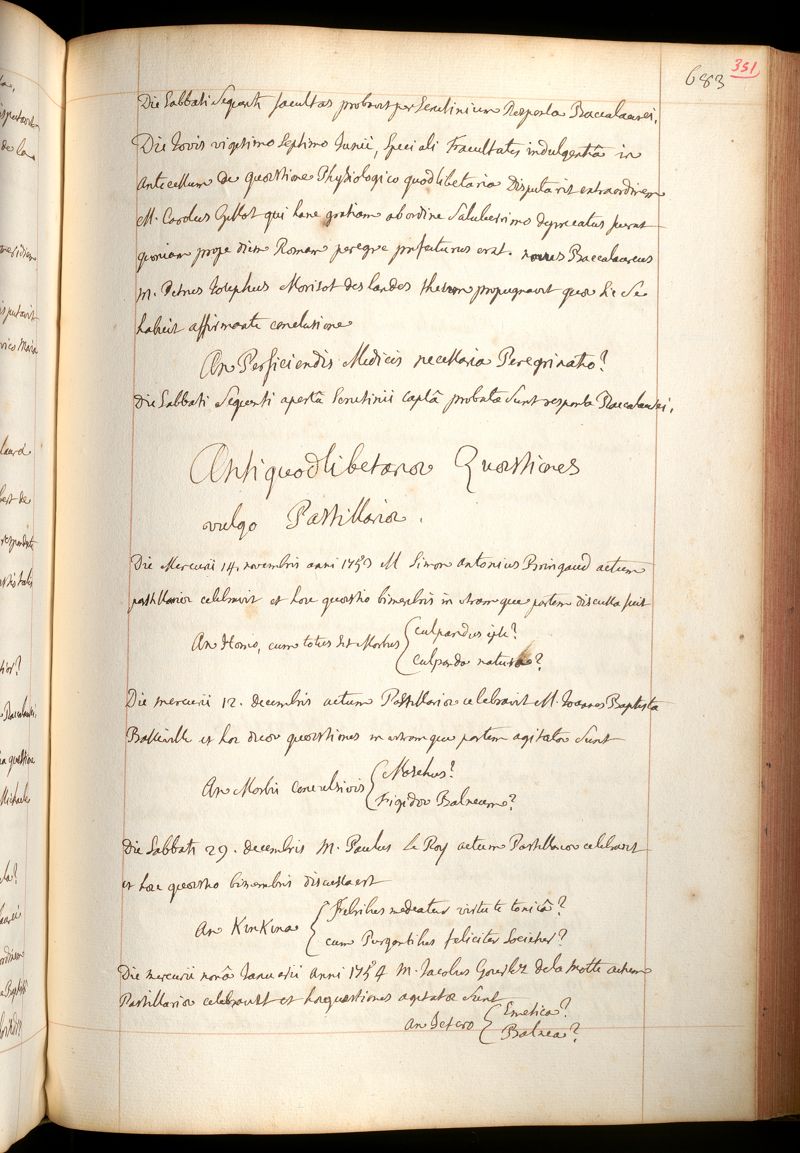 683 351
Die Sabbati Sequenti facultas probavit per Scrutinium Responsa Baccalaurei.
Die Jovis vigesimo Septimo Junii, Speciali Facultatis indulgentiâ in
antecessum de quæstione Physiologico quodlibetaria Disputavit extraordinem
M. Carolus Gillot qui hanc gratiam ab ordine Saluberrimo deprecatus fuerat
quoniam prope diem Romam peregre profecturus erat. novus Baccalaureus
M. Petrus Josephus Morisot deslandes thesim propugnavit quæ sic se
habuit affirmante conclusione
An Perficiendis Medicis necessaria Peregrinatio?
Die Sabbati Sequenti apertâ Scrutinii capsâ probata Sunt responsa Baccalaurei.
Antiquodlibetariæ Quæstiones
vulgo Pastillariæ.
Die Mercurii 14. novembris anni 1753 M Simon antonius Bringaud actum
pastillariæ celebravit et hæc quæstio bimembris in utramque partem discussa fuit
An Homo, cum totus sit Morbus { culpandus ipse?
culpanda natura?
Die mercurii 12. decembris actum Pastillariæ celebravit M. Joannes Baptista
Basseville et hæ duæ quæstiones in utramque partem agitatæ Sunt
An Morbis convulsivis { Moschus?
Frigidum Balneum?
Die Sabbati 29. decembris M. Paulus le Roy actum Pastillariæ celebravit
et hæc quæstio bimembris discussa est
an KinKina { Febribus medeatur virtute tonicâ?
cum Purgantibus feliciter Societur?
Die mercurii nonâ Januarii anni 1754 M. Jacobus de la Motte actum
Pastillariæ celebravit et hæ quæstiones agitatæ Sunt
an Ictero { Emetica?
Balnea?